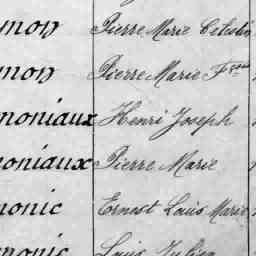 mon Pierre Marie Célestin
mon Pierre Marie Fçois
moniaux Henri Joseph
moniaux Pierre Marie
monic Ernest Louis Marie
monic Louis Julien